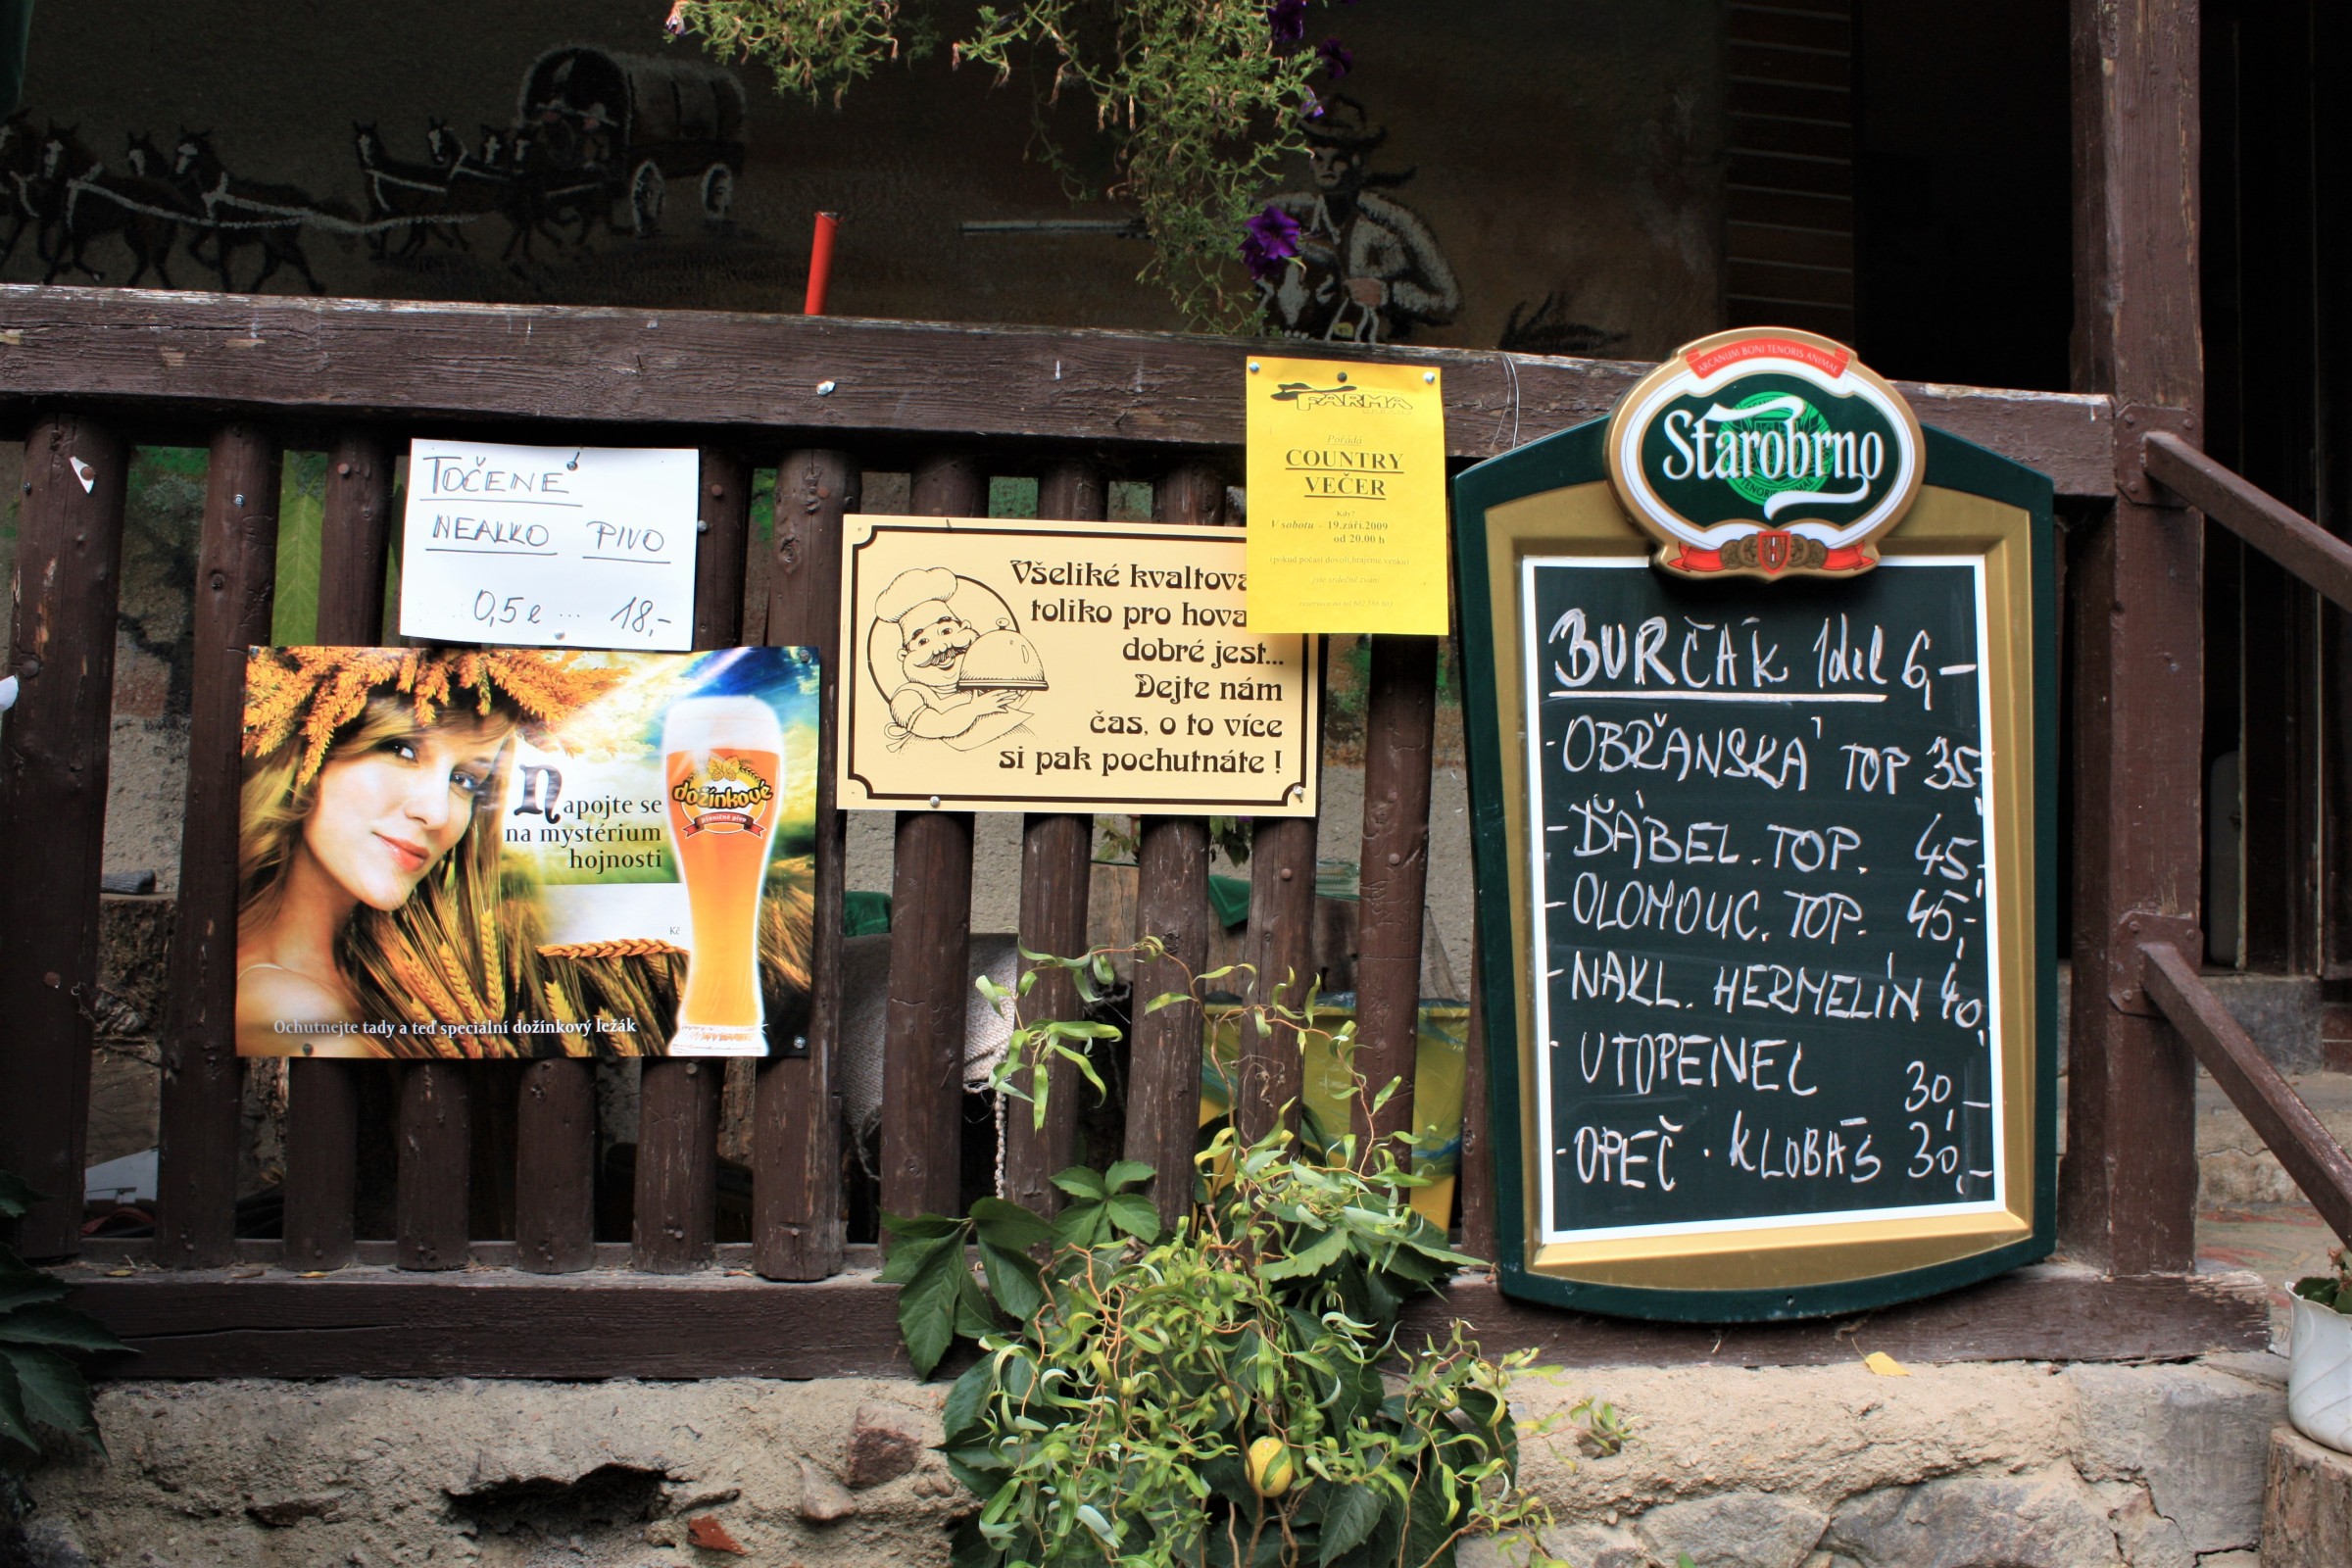 TOČENE
NEALKO PIVO
0,5l ... 18,-
Napojte se
na mystérium
hojnosti
dožínkové
pšeničné pivo
Kč
Ochutnejte tady a teď speciální dožínkový ležák
Všeliké kvaltova
toliko pro hova
dobré jest...
Dejte nám
čas, o to více
si pak pochutnáte !
FARMA
Pořádá
COUNTRY
VEČER
Kdy?
V sobotu - 19.září.2009
od 20.00 h
ARCANUM BONI TENORIS ANIMAE
Starobrno
BURČÁK 1dcl 6,-
- OBŘANSKÁ TOP 35,-
- ĎÁBEL. TOP. 45,-
- OLOMOUC. TOP. 45,-
- NAKL. HERMELÍN 40,-
- UTOPENEC 30,-
- OPEČ. KLOBÁS 30,-